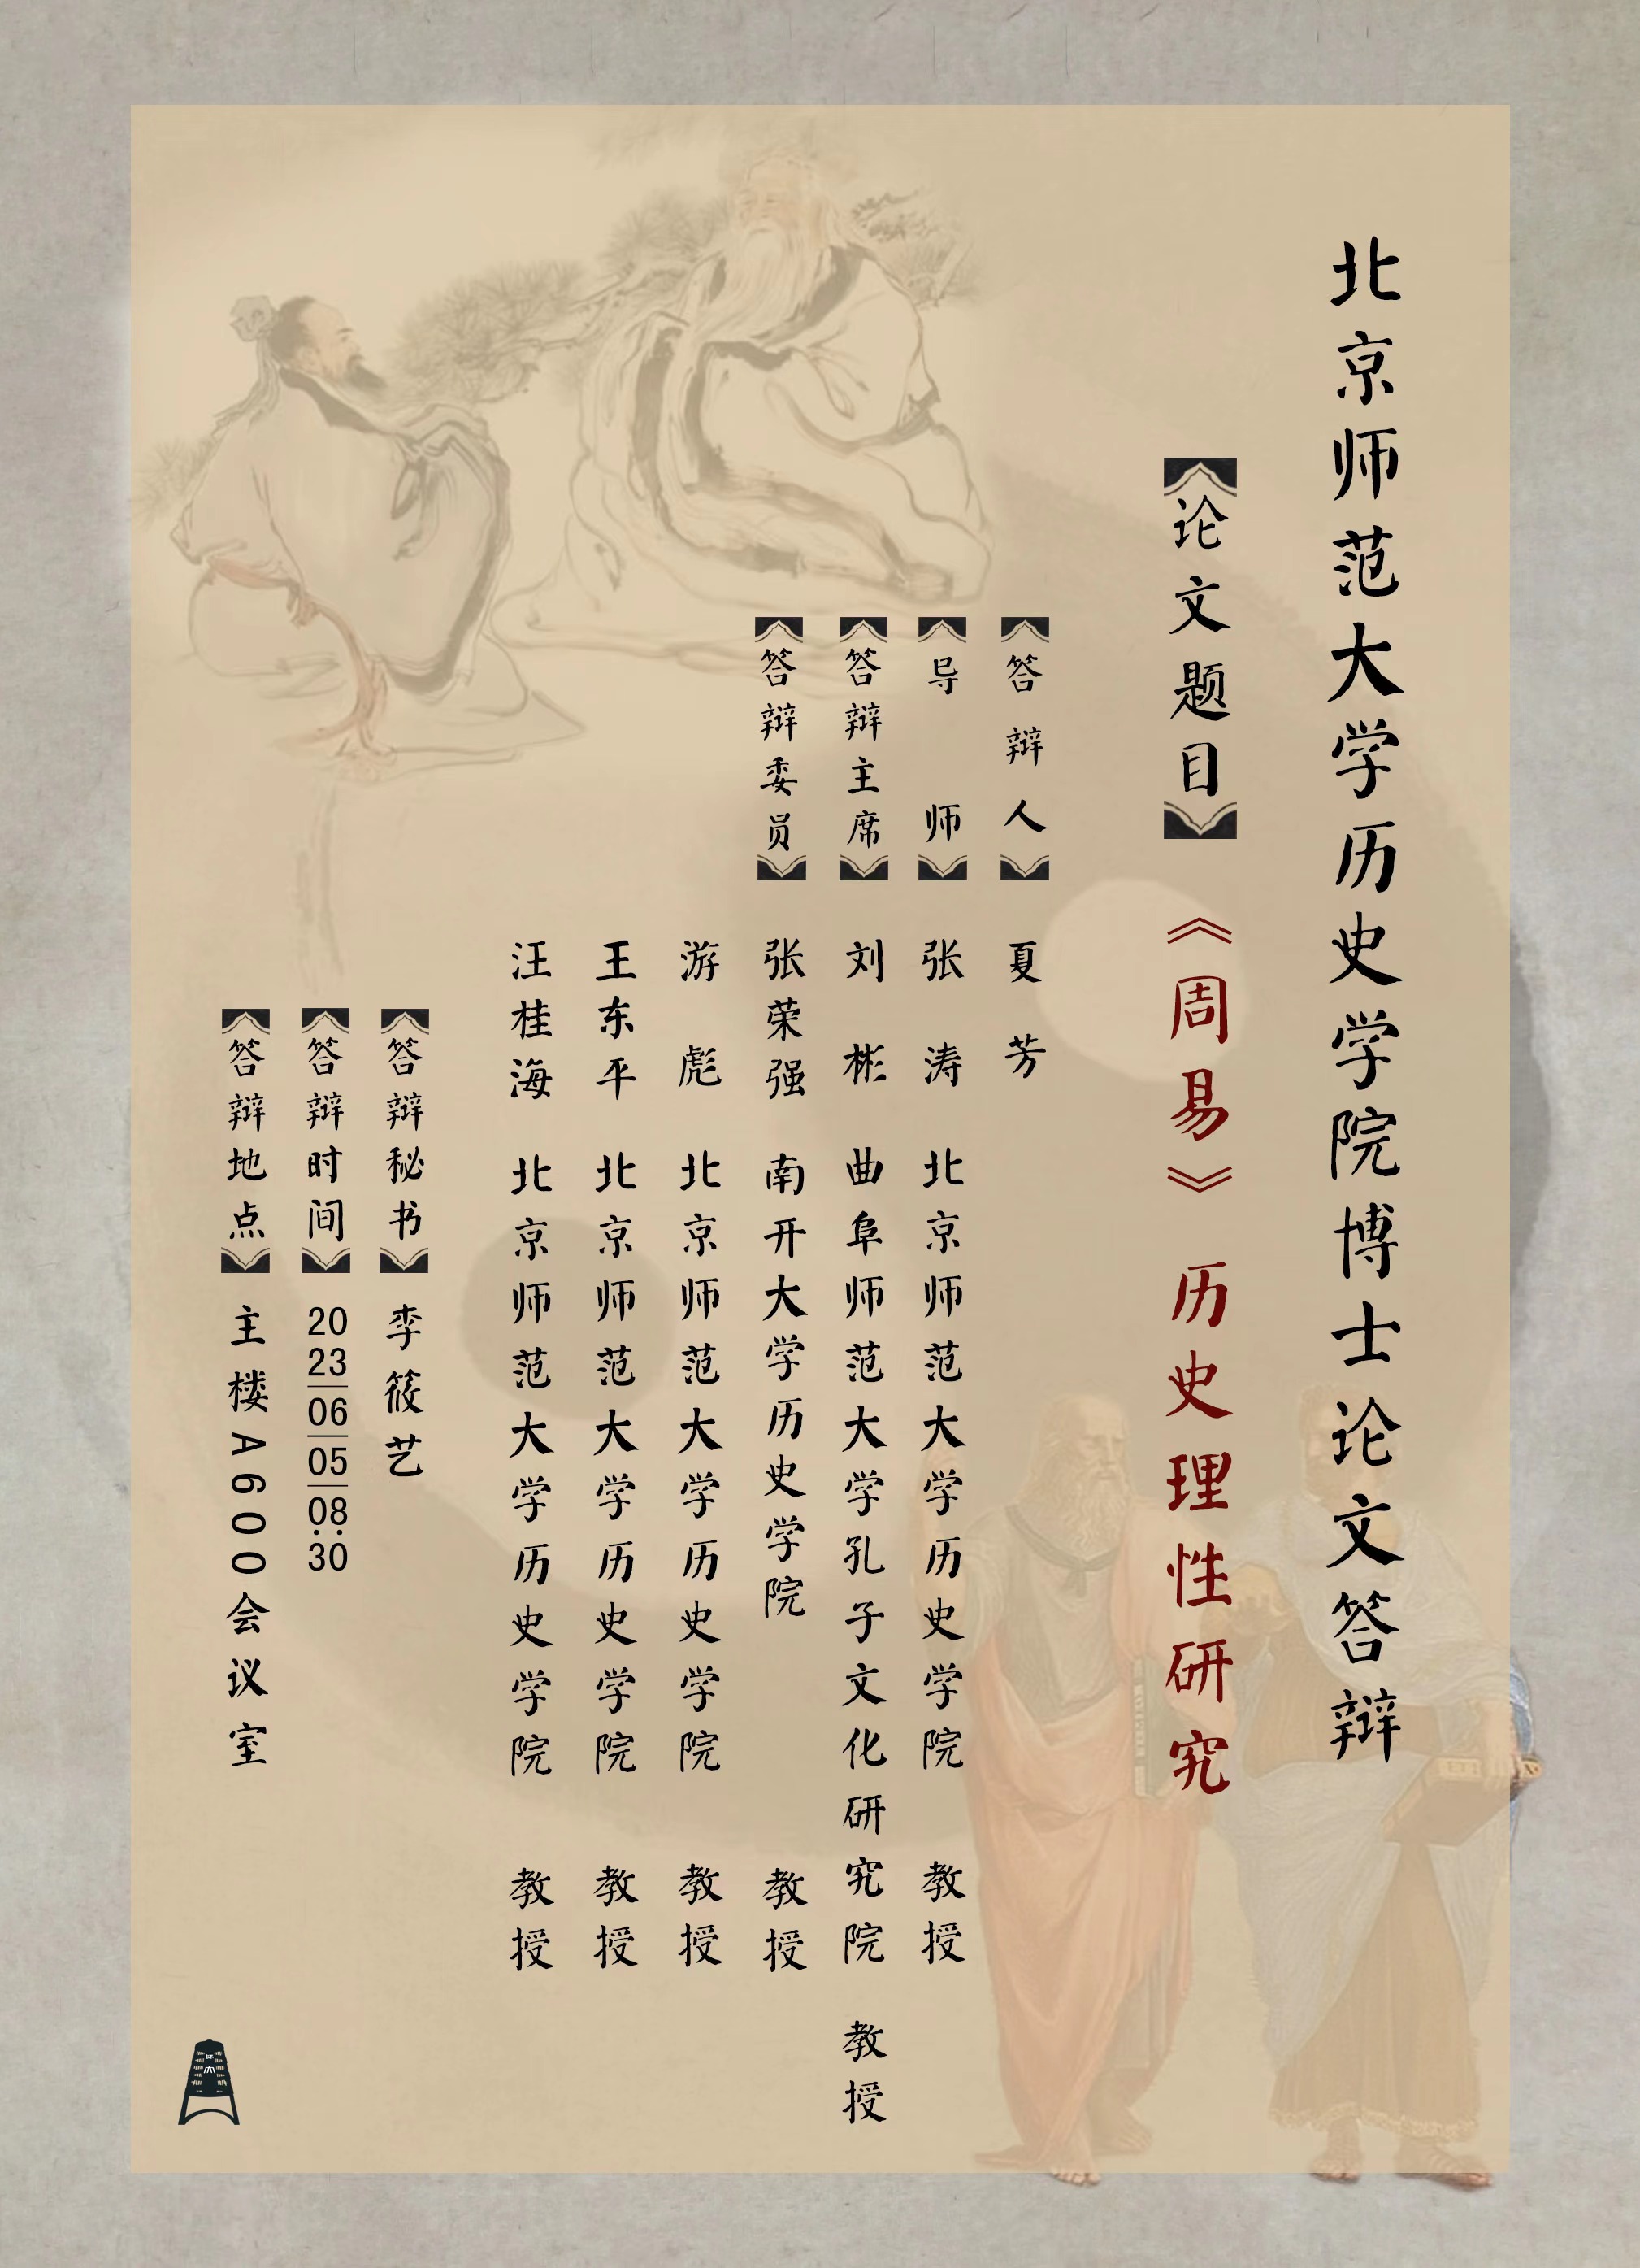 北京师范大学历史学院博士论文答辩
【论文题目】《周易》历史理性研究
【答辩人】夏芳
【导师】张涛 北京师范大学历史学院 教授
【答辩主席】刘彬 曲阜师范大学孔子文化研究院 教授
【答辩委员】张荣强 南开大学历史学院 教授
游彪 北京师范大学历史学院 教授
王东平 北京师范大学历史学院 教授
汪桂海 北京师范大学历史学院 教授
【答辩秘书】李筱艺
【答辩时间】2023|06|05|08:30
【答辩地点】主楼A600会议室